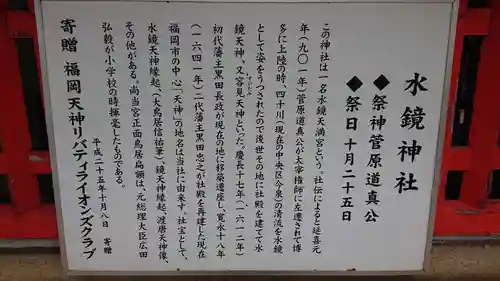 水鏡神社
◆祭神菅原道真公
◆祭日 十月二十五日
この神社は一名水鏡天満宮という。社伝によると延喜元
年(九〇一年)菅原道真公が太宰権師に左遷されて博
多に上陸の時、四十川(現在の中央区今泉)の清流を水鏡
として姿をうつされたので後世その地に社殿を建てて水
鏡天神、又容見天神といった。慶長十七年(一六一二年)
初代藩主黒田長政が現在の地に移築遷座し、寛永十八年
(一六四一年)二代藩主黒田忠之が社殿を再建した現在
福岡市の中心「天神」の地名は当社に由来す。社宝として、
水鏡天神縁起、(大鳥居信祐筆)、鏡天神縁起、渡唐天神像、
その他がある。尚当宮正面鳥居扁額は、元総理大臣広田
弘毅が小学校の時揮毫したものである。
平成二十五年十月八日
寄贈 福岡天神リバティライオンズクラブ 寄贈